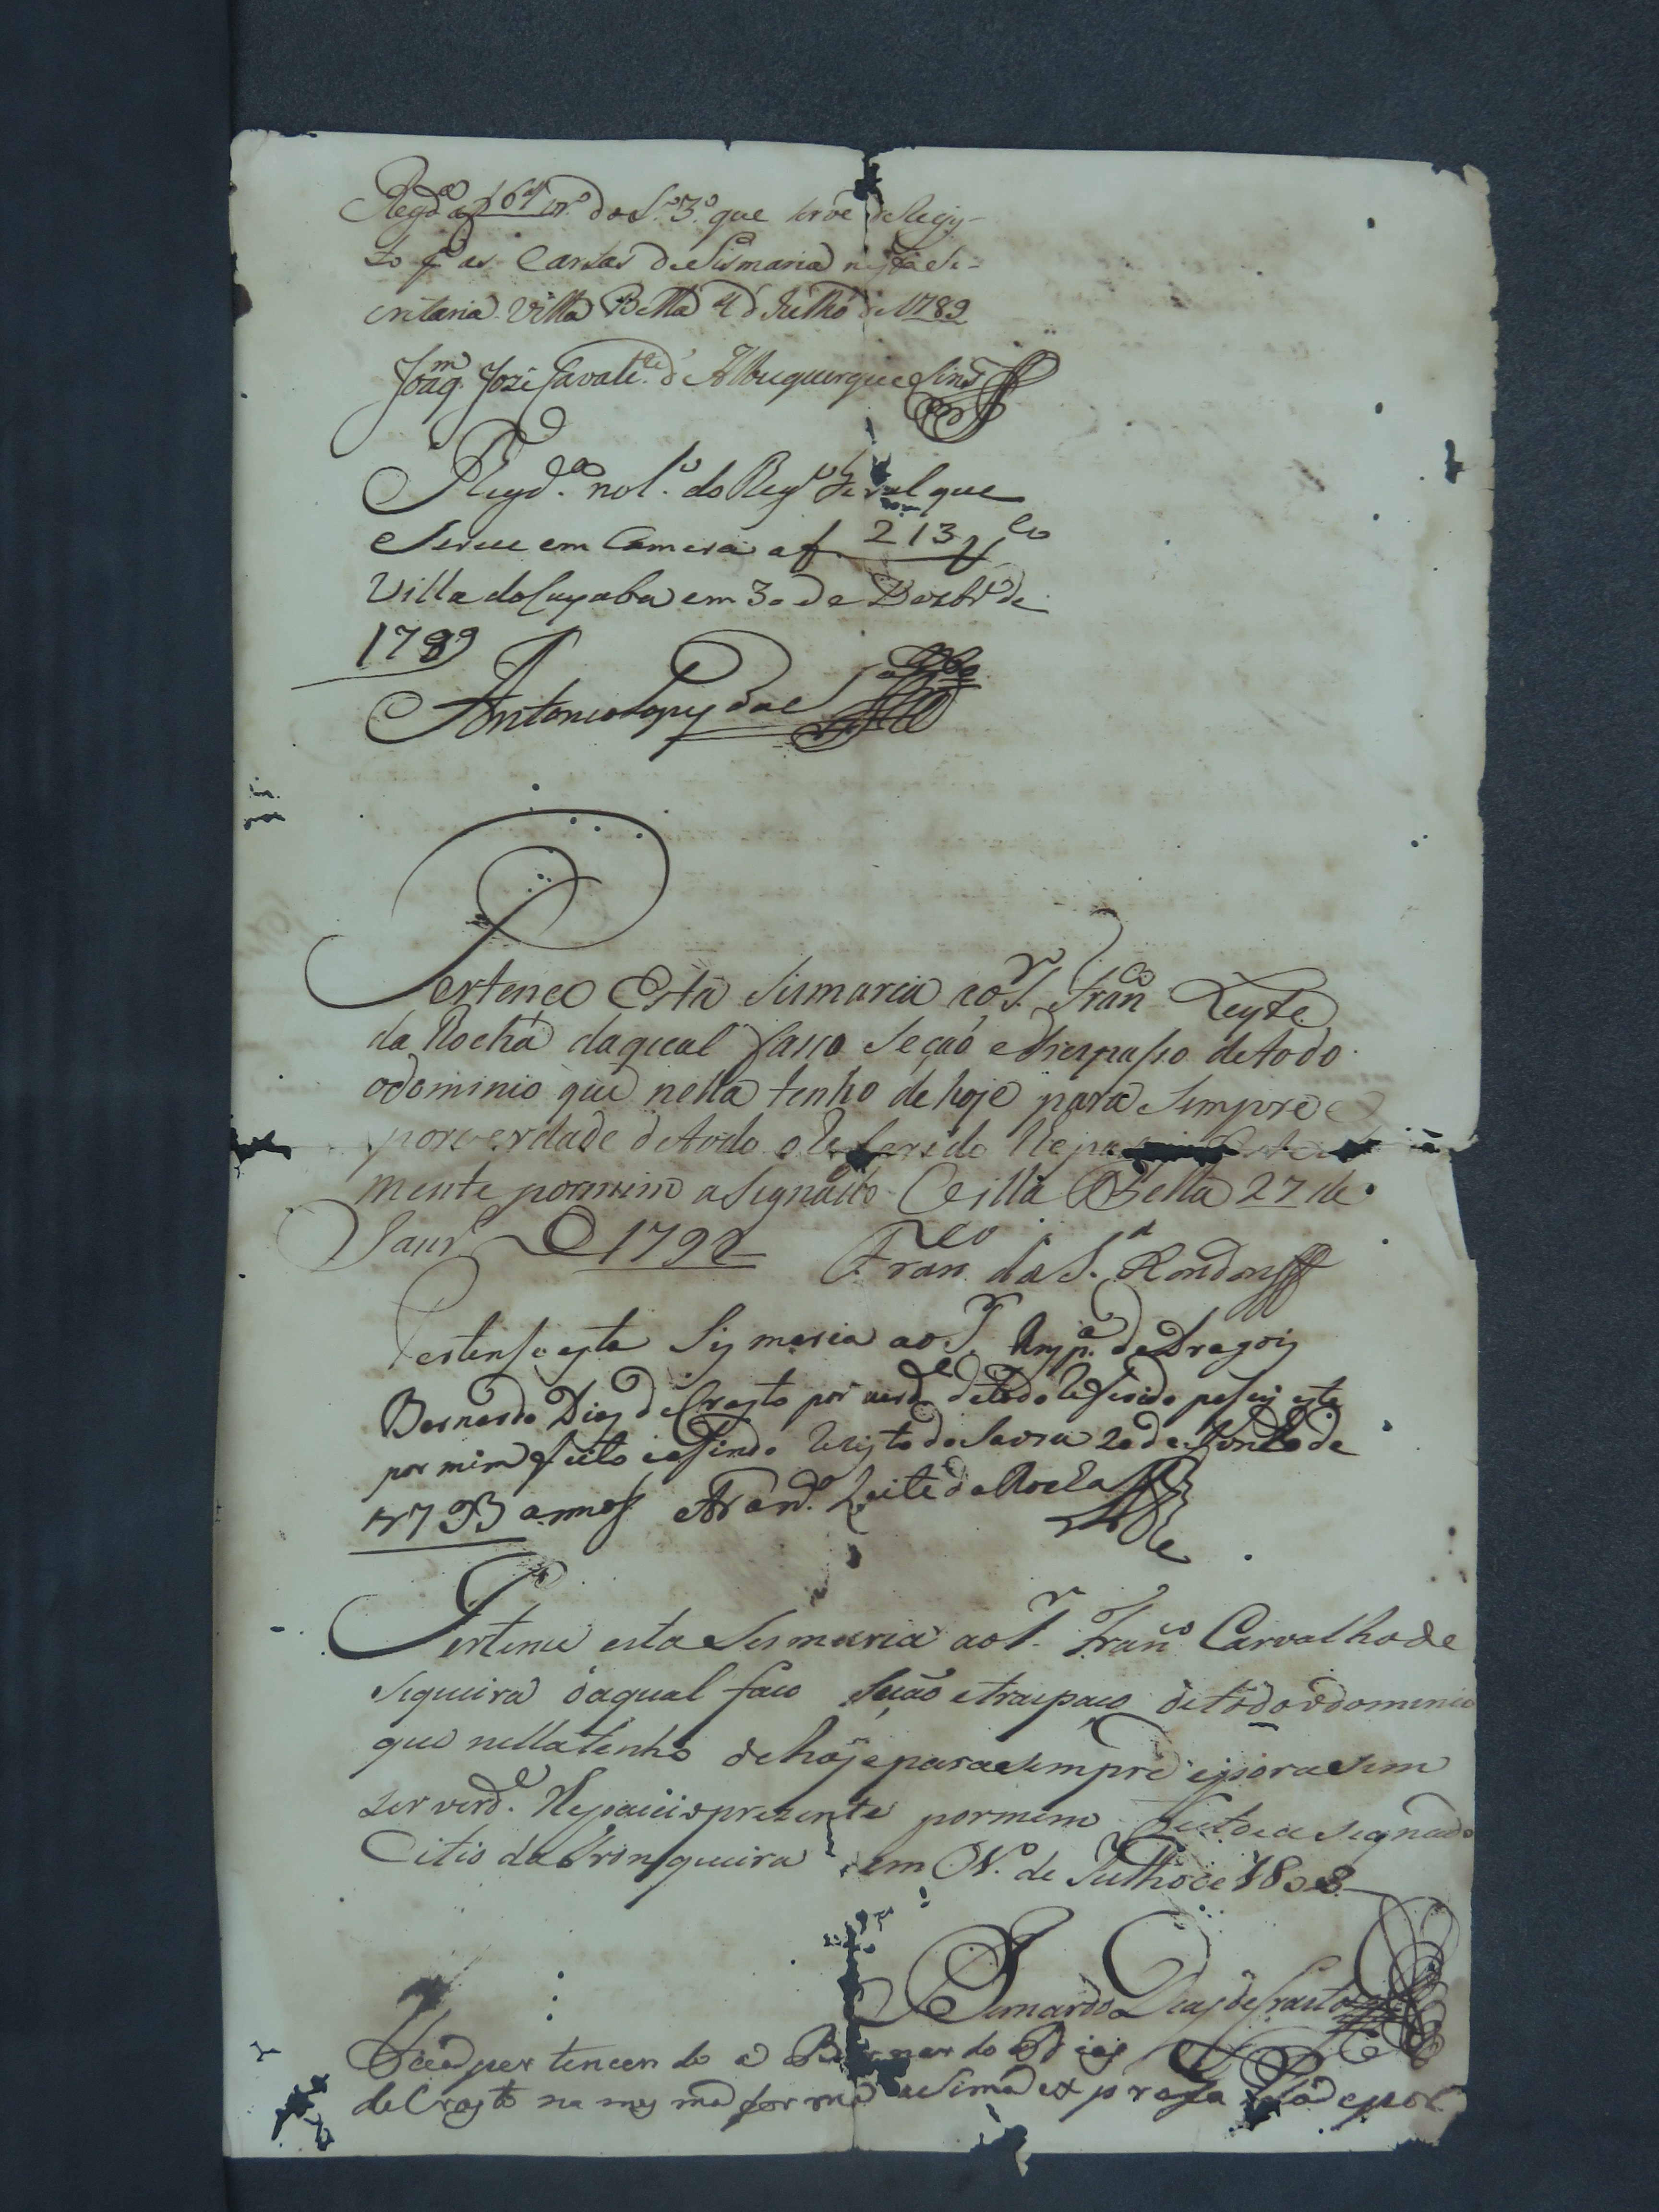 Regd.ª a f 161 vº do Lº 3º que serve de Regis-
to das Cartas de Sismaria nesta Se-
cretaria. Villa Bella 4 d Julho de 1789
Joaq.m Jozé Cavalc.te d' Albuquerque Lins
Regd.ª no l.º do Reg.º Geral que
Serve em Camera a f 213
Villa do Cuyaba em 30 de Dezbrº de
1789
Antonio Lopes
Pertence Esta Sismaria ao Sr. Franco Leyte
da Rocha daqual fasso seçaõ e trespasso de todo
o dominio que nella tenho de hoje para sempre e
por verdade de todo o Referido
mente por mim asignado Villa Bella 27 de
Janr.º D 1792 Franco da S.ª Rondon
Pertense esta Sismaria ao Sr. de Dragois
Bernardo Dias de Crasto por verd.e de todo Referido pasei este
por mim feito e asinado 20 de Junho de
1793 annos Franº Leite da Rocha
Pertence esta Sesmaria ao Sr. Franco Carvalho de
Siqueira daqual faco seçaõ e traspaco de todo o dominio
que nella tenho de hoje para sempre e por asim
ser verd.e Ihe pacei o prezente por mim feito e asignado
Citio da em Nº de Julho de 1808
Bernardo Dias de Crasto
Fica pertencendo a Bernardo Dias
de Crasto na mesma forma asima expresa